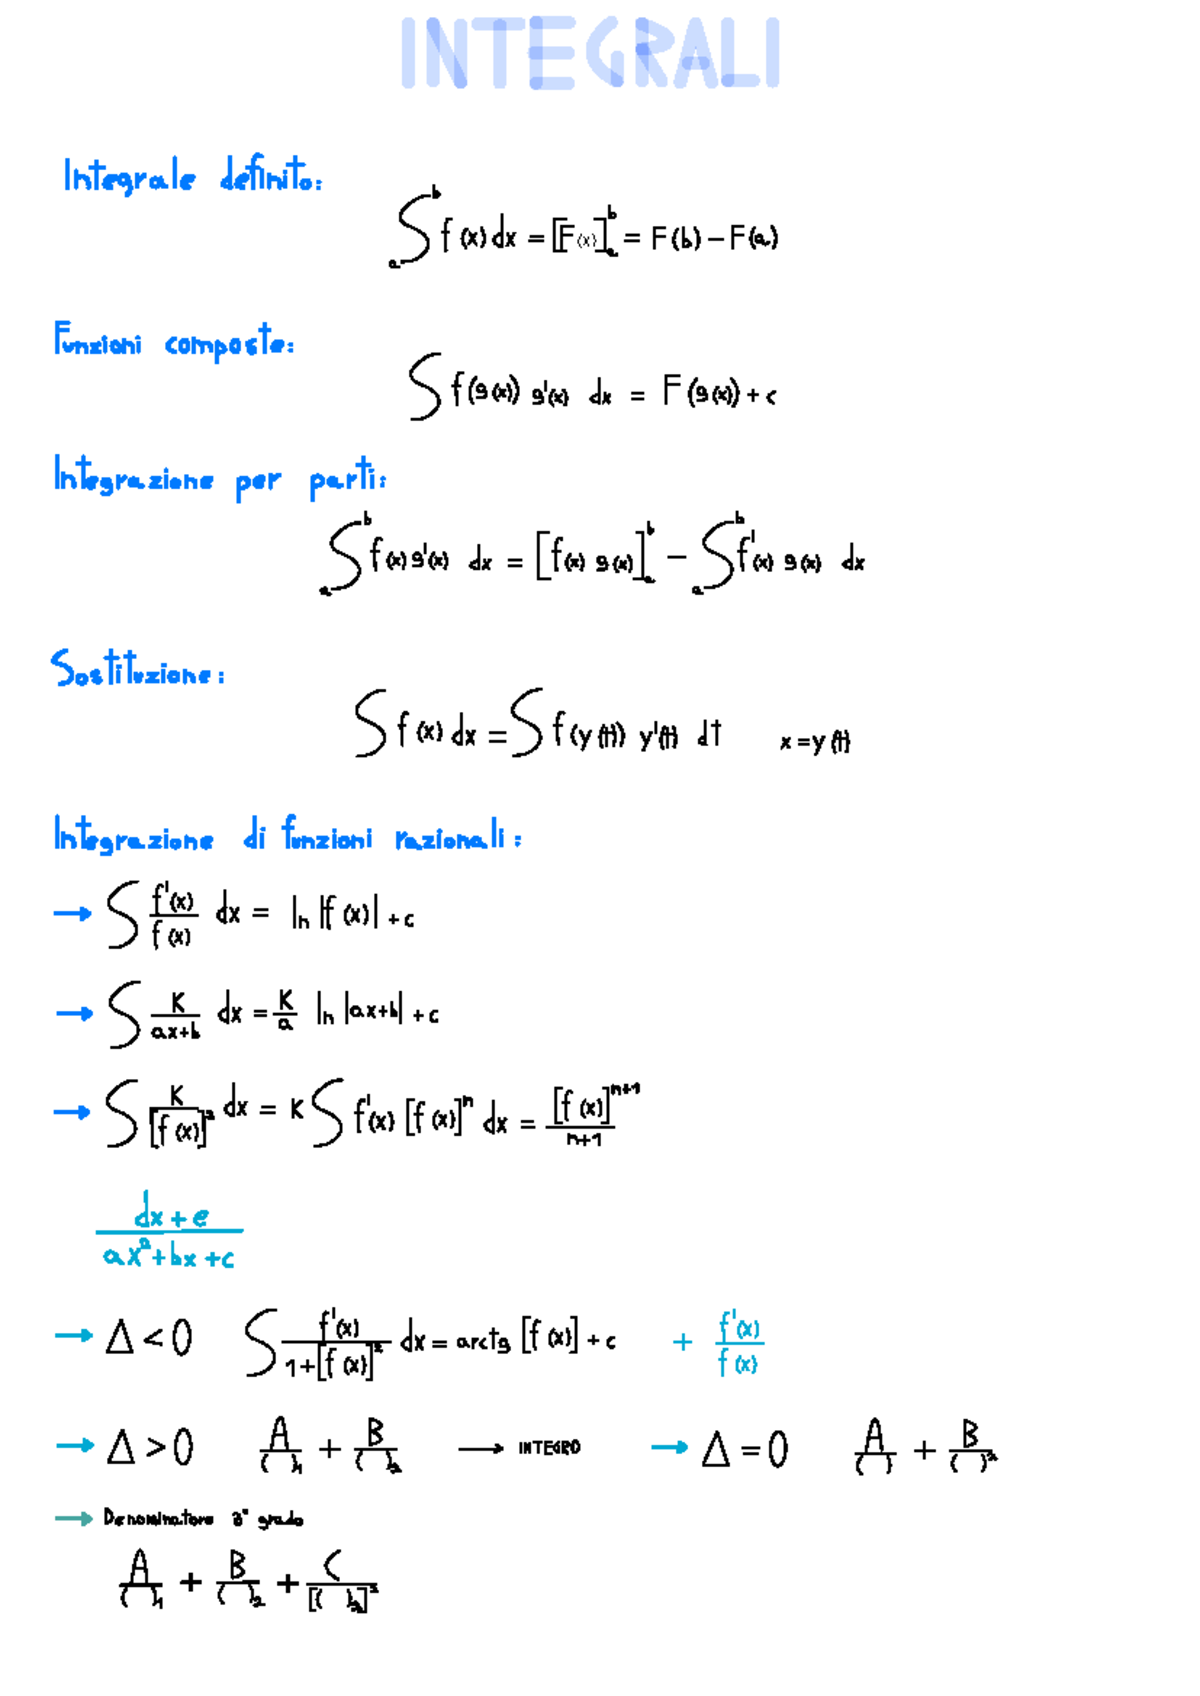 INTEGRALI
Integrale definito:
∫_a^b f(x) dx = [F(x)]_a^b = F(b) - F(a)
Funzioni composte:
∫ f(g(x)) g'(x) dx = F(g(x)) + c
Integrazione per parti:
∫_a^b f(x) g'(x) dx = [f(x) g(x)]_a^b - ∫_a^b f'(x) g(x) dx
Sostituzione:
∫ f(x) dx = ∫ f(y(t)) y'(t) dt x = y(t)
Integrazione di funzioni razionali:
→ ∫ f'(x)/f(x) dx = ln |f(x)| + c
→ ∫ K/(ax+b) dx = K/a ln |ax+b| + c
→ ∫ K/[f(x)]^2 dx = K ∫ f'(x) [f(x)]^n dx = [f(x)]^(n+1)/(n+1)
(dx + e)/(ax^2 + bx + c)
→ Δ < 0 ∫ f'(x)/(1+[f(x)]^2) dx = arctg [f(x)] + c + f'(x)/f(x)
→ Δ > 0 A/( )_1 + B/( )_2 → INTEGRO → Δ = 0 A/( ) + B/( )^2
→ Denominatore 3° grado
A/( )_1 + B/( )_2 + C/[( )_2]^2